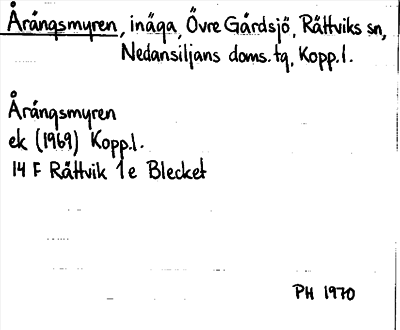 Årängsmyren, inäga, Övre Gärdsjö, Rättviks sn,
Nedansiljans doms.tg, Kopp.l.
Årängsmyren
ek (1969) Kopp.l.
14 F Rättvik 1e Blecket
PH 1970